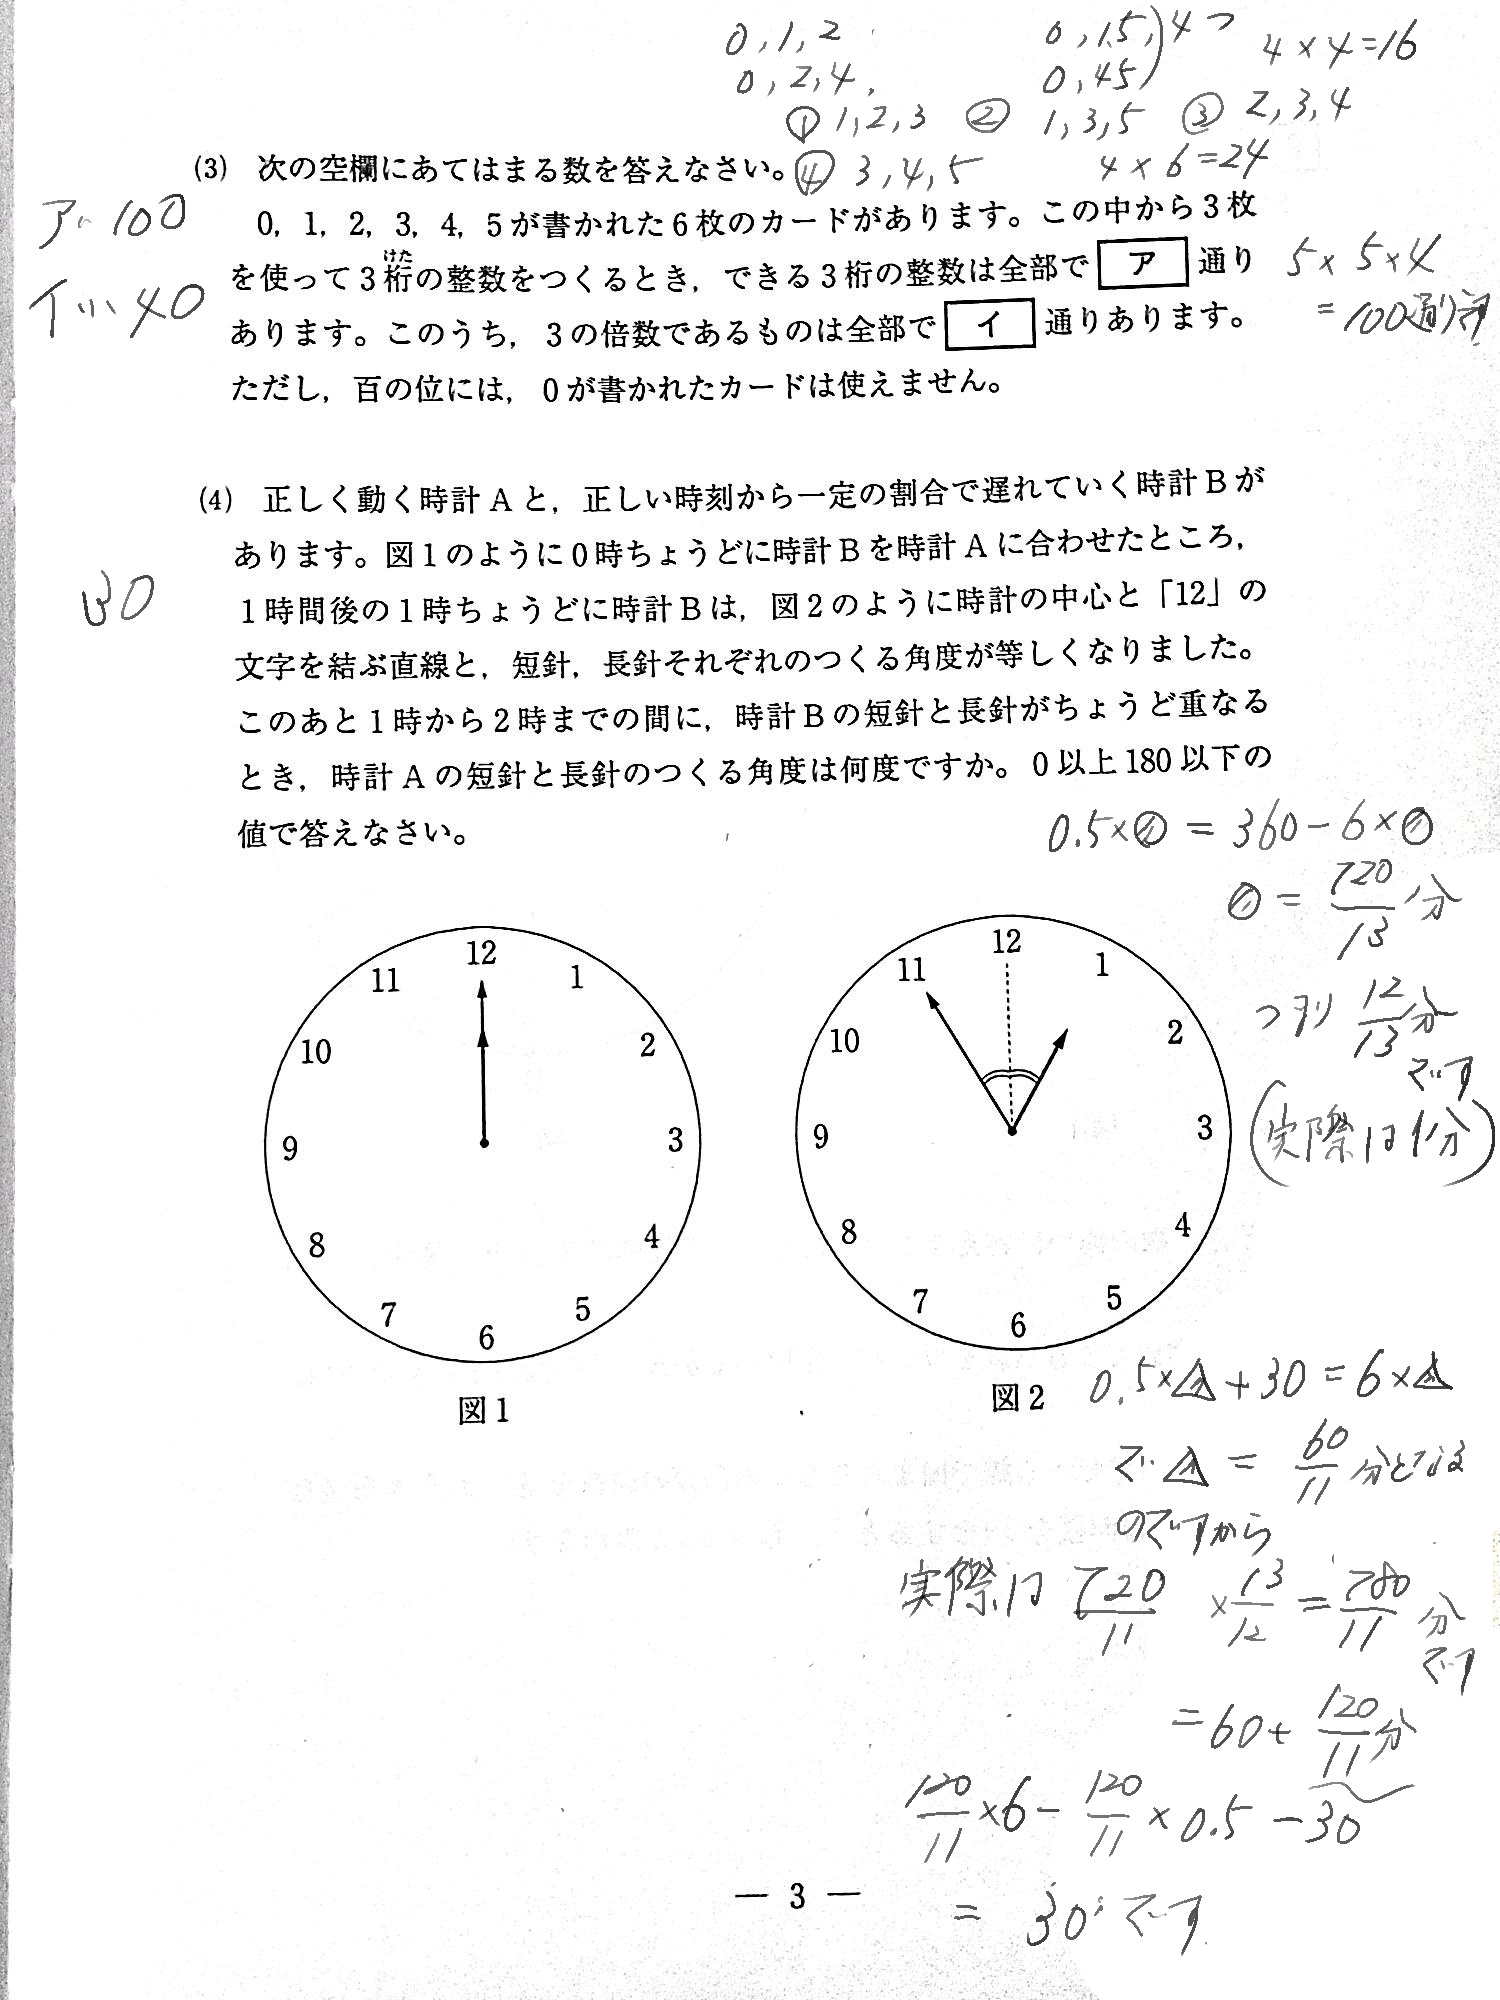 0, 1, 2
0, 2, 4,
0, 1 5, 4つ
0, 45
4 × 4 = 16
① 1, 2, 3 ② 1, 3, 5 ③ 2, 3, 4
④ 3, 4, 5 4 × 6 = 24
(3) 次の空欄にあてはまる数を答えなさい。
ア… 100
イ… 40
0, 1, 2, 3, 4, 5が書かれた6枚のカードがあります。この中から3枚
けた
を使って3桁の整数をつくるとき，できる3桁の整数は全部で ア 通り
あります。このうち，3の倍数であるものは全部で イ 通りあります。
ただし，百の位には，0が書かれたカードは使えません。
5 × 5 × 4
= 100通りです
(4) 正しく動く時計Aと，正しい時刻から一定の割合で遅れていく時計Bが
あります。図1のように0時ちょうどに時計Bを時計Aに合わせたところ，
1時間後の1時ちょうどに時計Bは，図2のように時計の中心と「12」の
文字を結ぶ直線と，短針，長針それぞれのつくる角度が等しくなりました。
このあと1時から2時までの間に，時計Bの短針と長針がちょうど重なる
とき，時計Aの短針と長針のつくる角度は何度ですか。0以上180以下の
値で答えなさい。
30
0.5×⊘ = 360 - 6×⊘
⊘ = 720/13 分
つまり 12/13 分
です
(実際は1分)
12
11
1
10
2
9
3
8
4
7
5
6
図1
12
11
1
10
2
9
3
8
4
7
5
6
図2
0.5×△+30 = 6×△
で △ = 60/11 分となる
のですから
実際は 720/11 × 13/12 = 780/11 分
です
= 60 + 120/11 分
120/11 × 6 - 120/11 × 0.5 - 30
= 30°です
— 3 —